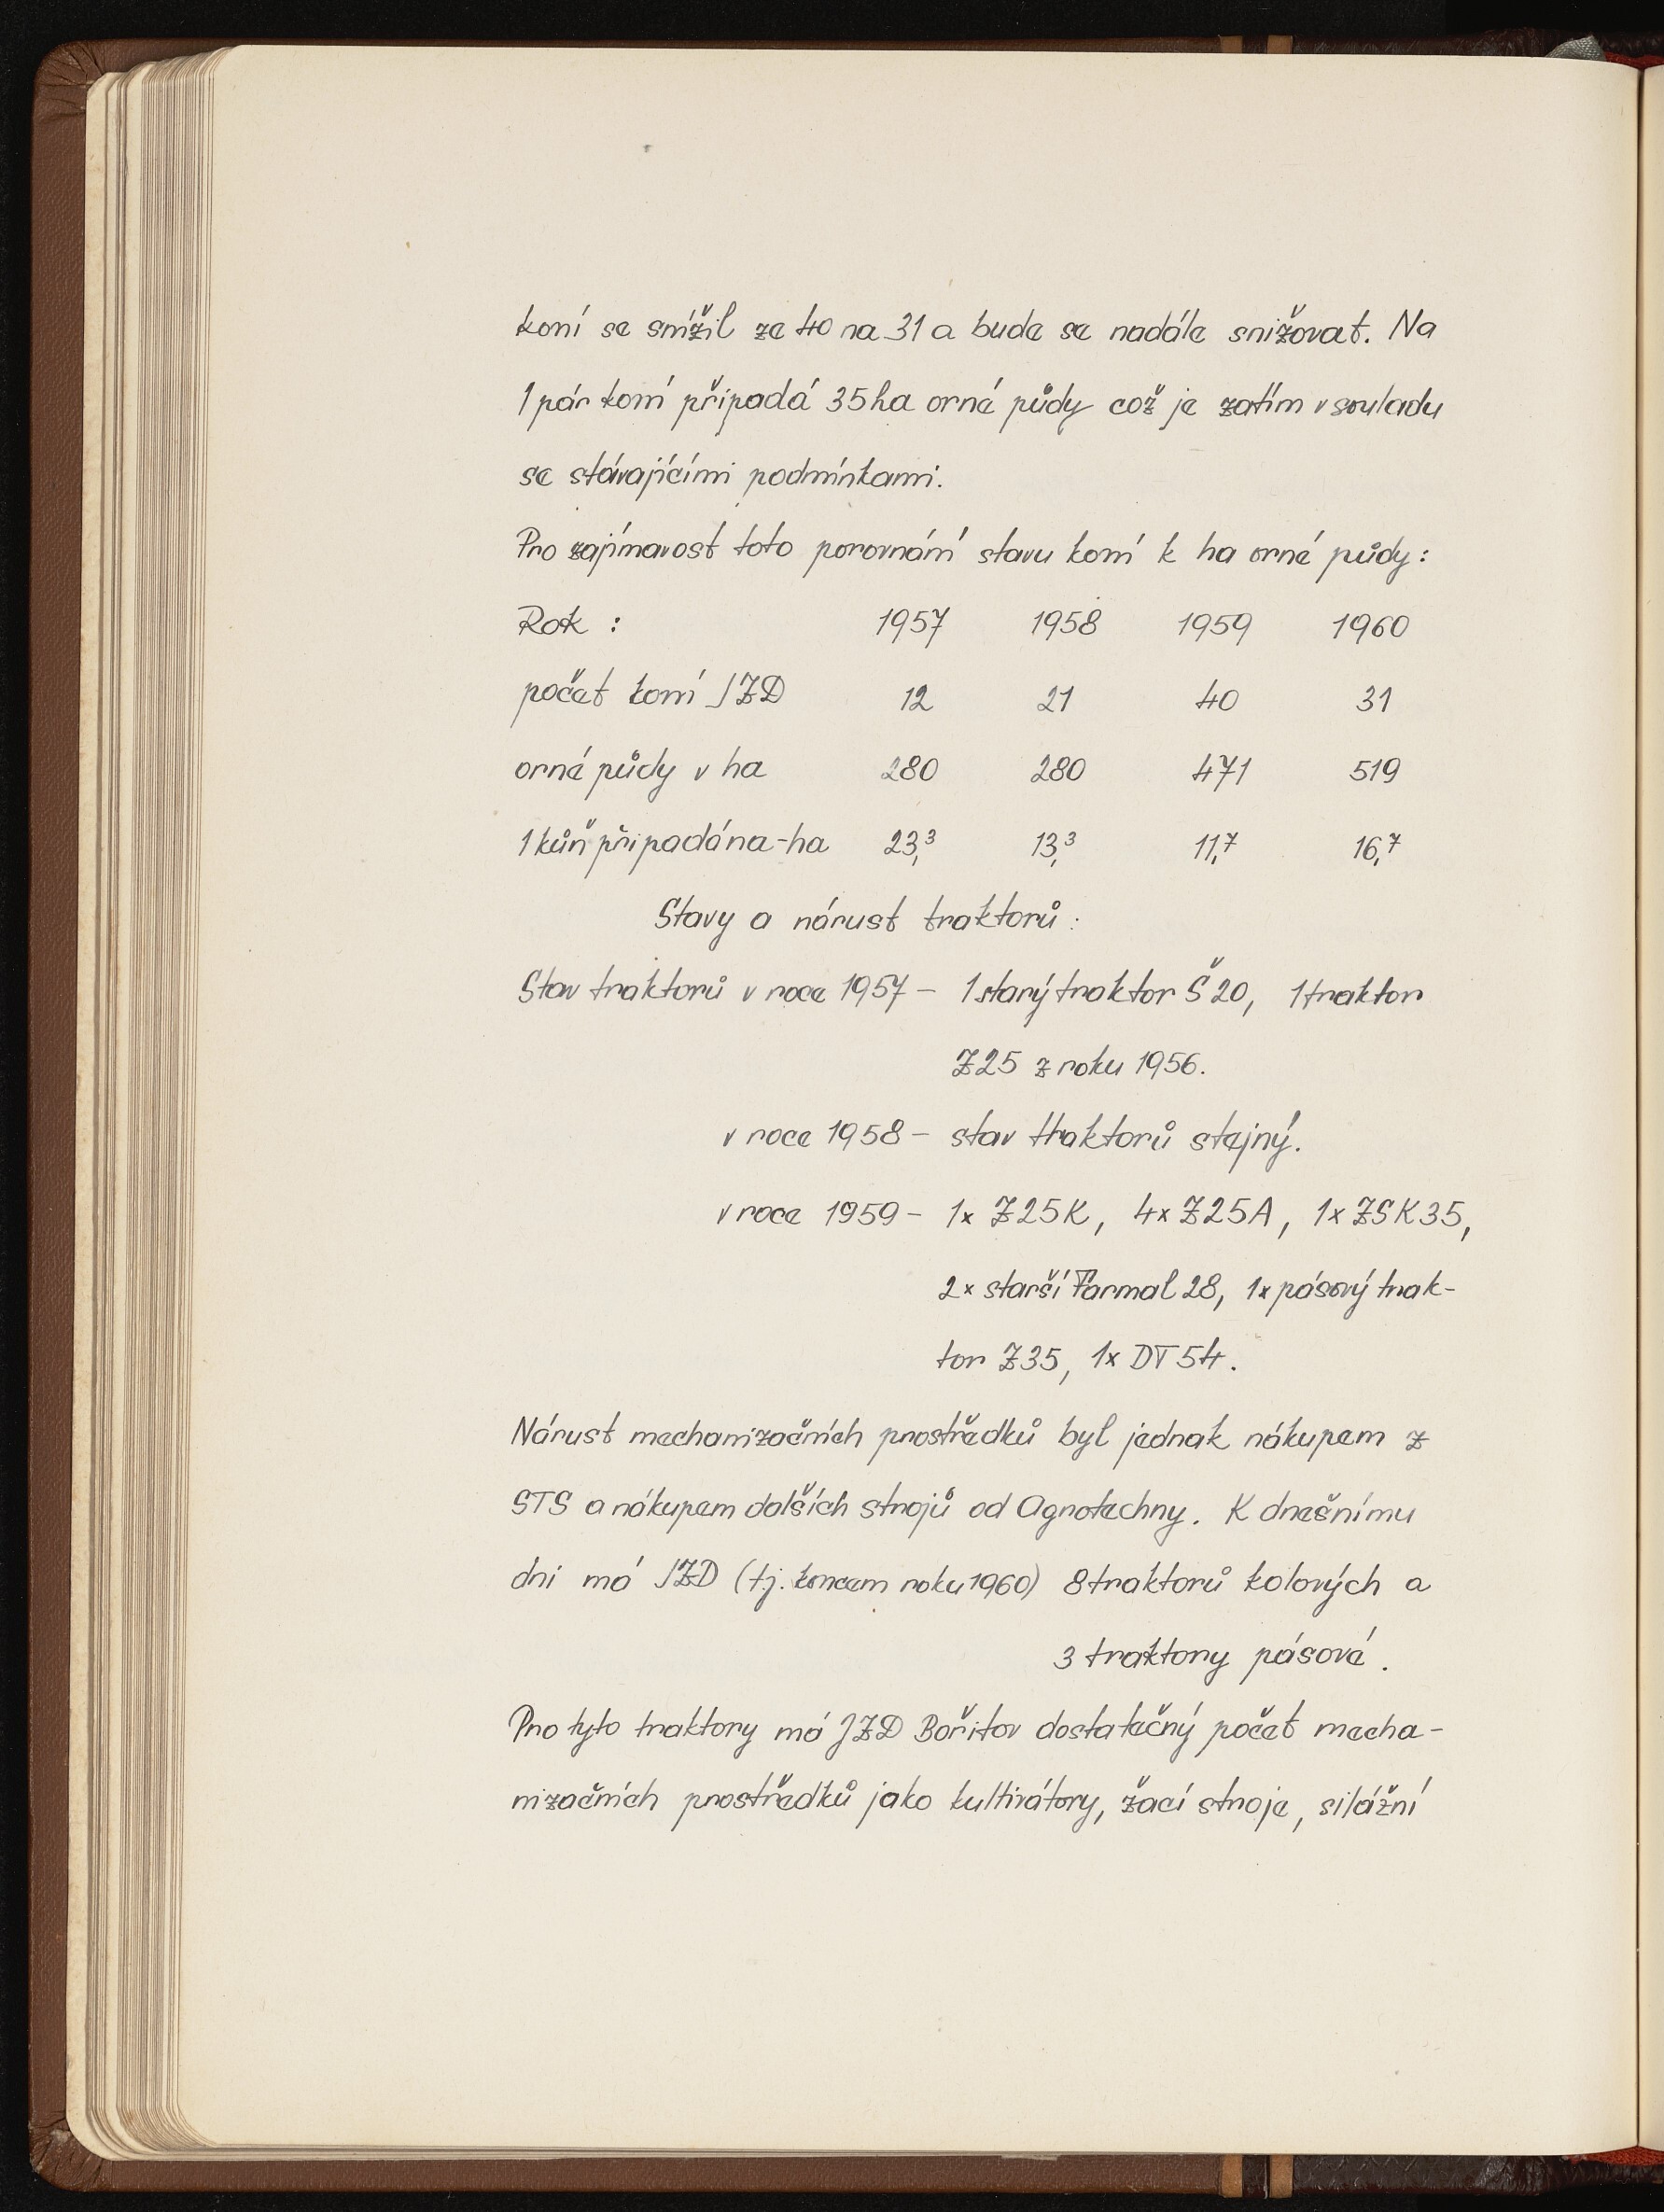 koní se snížil ze 40 na 31 a bude se nadále snižovat. Na
1 pár koní připadá 35 ha orné půdy což je zatím v souladu
se stávajícími podmínkami.
Pro zajímavost toto porovnání stavu koní k ha orné půdy:
Rok : 1957 1958 1959 1960
počet koní JZD 12 21 40 31
orné půdy v ha 280 280 471 519
1 kůň připadá na-ha 23,3 13,3 11,7 16,7
Stavy a nárust traktorů :
Stav traktorů v roce 1957 – 1 starý traktor Š 20, 1 traktor
Z25 z roku 1956.
v roce 1958 – stav traktorů stejný.
v roce 1959 – 1x Z25K, 4x Z25A, 1x ZSK35,
2x starší Farmal 28, 1x pásový trak-
tor Z35, 1x DT 54.
Nárust mechanizačních prostředků byl jednak nákupem z
STS a nákupem dalších strojů od Agrotechny. K dnešnímu
dni má JZD (tj. koncem roku 1960) 8 traktorů kolových a
3 traktory pásové.
Pro tyto traktory má JZD Bořitov dostatečný počet mecha-
nizačních prostředků jako kultivátory, žací stroje, silážní